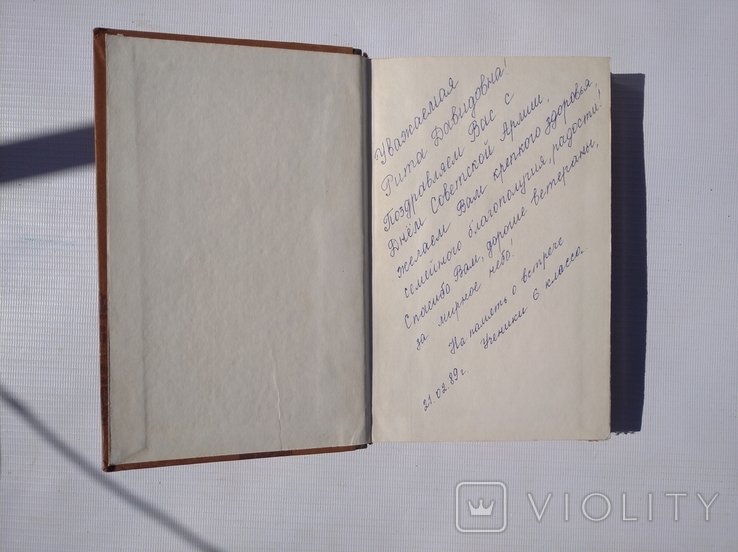 Уважаемая
Рита Давидовна!
Поздравляем Вас с
Днём Советской Армии,
желаем Вам крепкого здоровья,
семейного благополучия, радости!
Спасибо Вам, дорогие ветераны,
за мирное небо!
На память о встрече
Ученики 6 класса.
21.02.89г.
VIOLITY